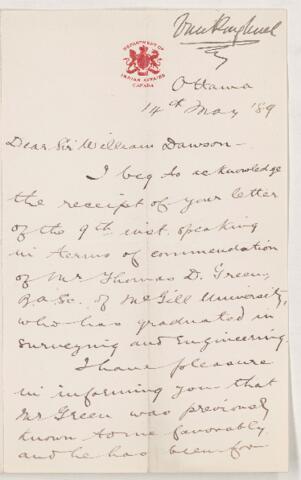 DEPARTMENT OF
INDIAN AFFAIRS
CANADA
Ottawa
14th May '89
Dear Sir William Dawson -
I beg to acknowledge
the receipt of your letter
of the 9th inst. speaking
in terms of commendation
of Mr Thomas D. Green,
B.a Sc. of McGill University,
who has graduated in
Surveying and Engineering.
I have pleasure
in informing you that
Mr Green was previously
known to me favorably
and he has been for